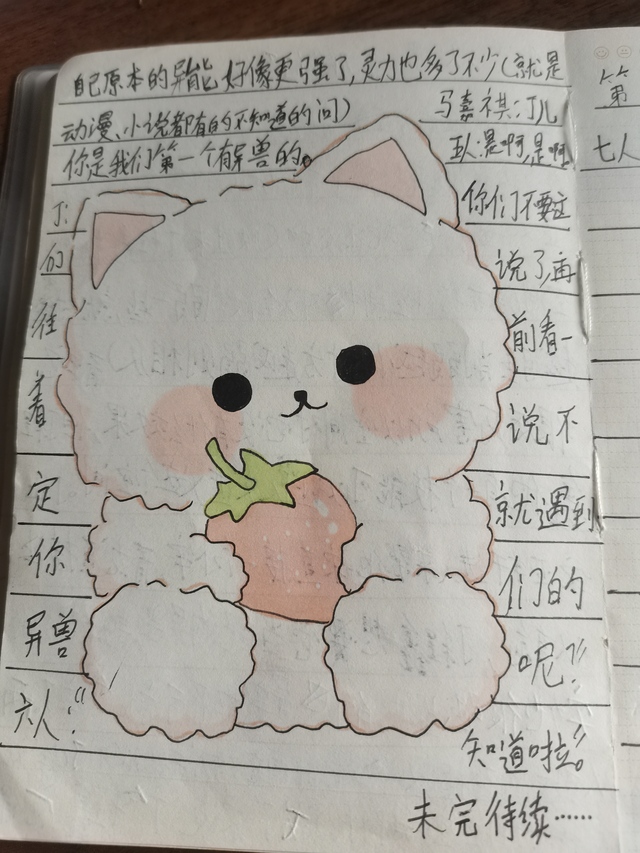 自己原本的异能好像更强了,灵力也多了不少(就是
动漫、小说都有的不知道的问)
马嘉祺:丁儿
你是我们第一个有异兽的。
五人:是啊,是啊
丁:
你们不要这
们
说了,再
往
前看一
着
说不
定
就遇到
你
们的
异兽
呢?”
六人:“
知道啦。”
未完待续……
第
七人